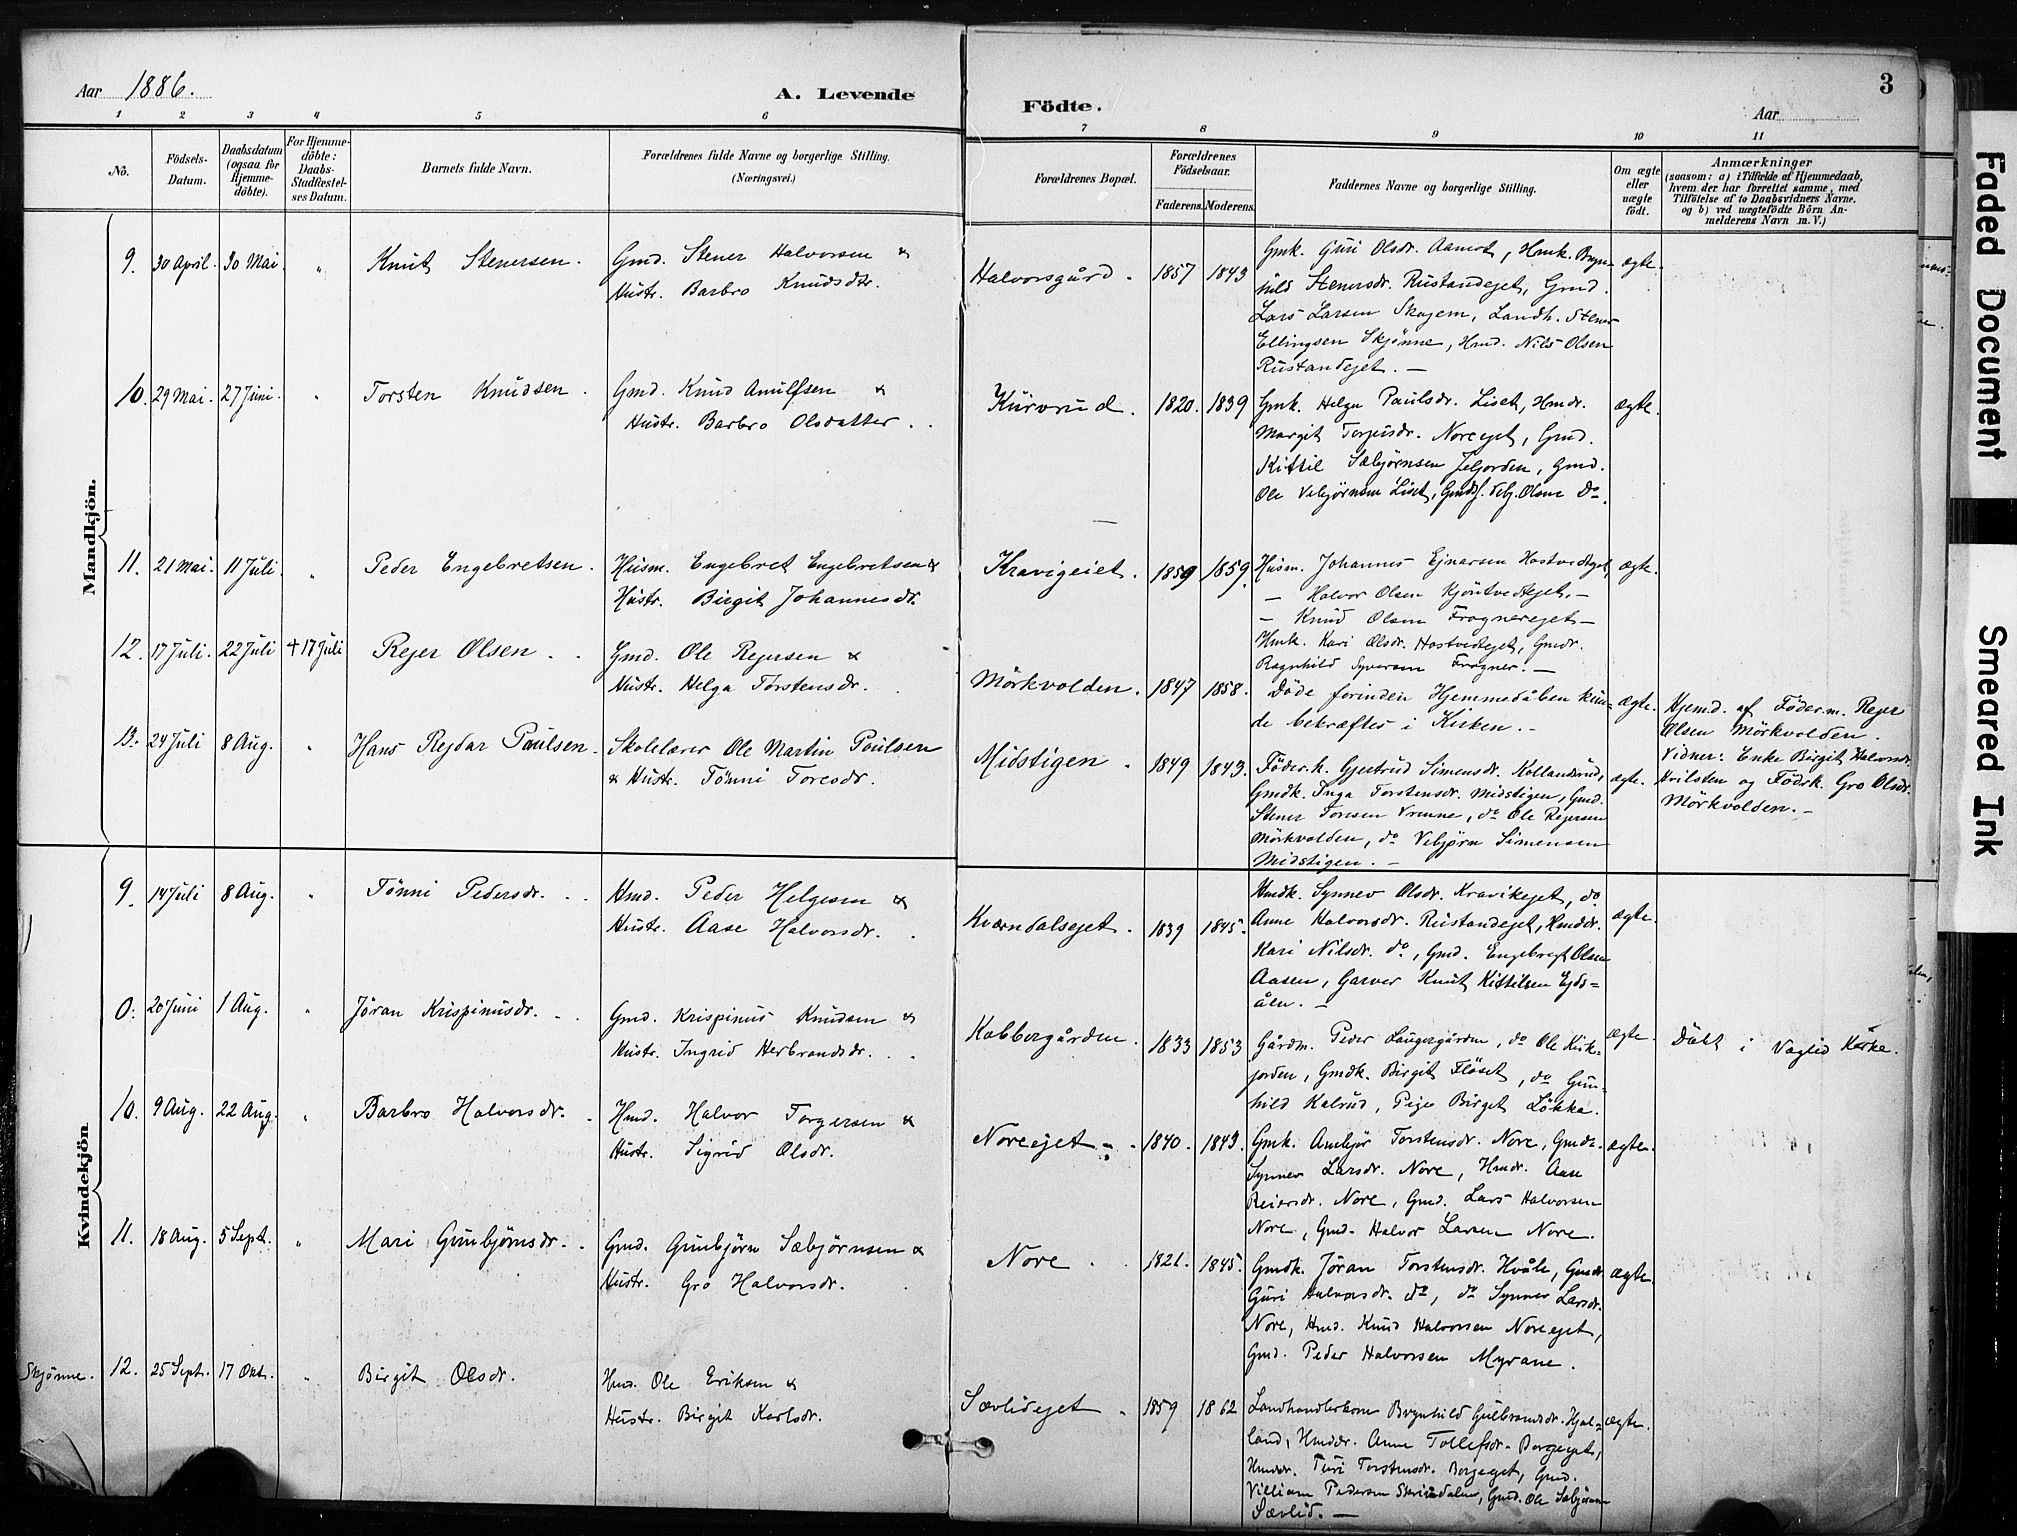 Aar 1886.
A. Levende
Födte.
Aar
3
1 2 3 4 5 6 7 8 9 10 11
No.
Födsels-
Datum.
Daabsdatum
(ogsaa for
Hjemme-
döbte).
For Hjemme-
döbte:
Daabs-
Stadfæstel-
ses Datum.
Barnets fulde Navn.
Forældrenes fulde Navne og borgerlige Stilling.
(Næringsvei.)
Forældrenes Bopæl.
Forældrenes
Födselsaar.
Faderens. Moderens.
Faddernes Navne og borgerlige Stilling.
Om ægte
eller
uægte
födt.
Anmærkninger
(saasom: a) i Tilfælde af Hjemmedaab,
hvem der har forrettet samme, med
Tilföielse af to Daabsvidners Navne.
og b) ved uægtefödte Börn An-
melderens Navn m. V.)
Mandkjön.
9. 30 April. 30 Mai. " Knut Stenersen. Gmd. Stener Halvorsen &
Hustr. Barbro Knudsdtr.
Halvorsgård. 1857 1843
Gmk. Guri Olsdr. Aamot, Hmk. Bryn-
hild Stenersdr. Rustandejet, Gmd.
Lars Larsen Skagem, Landh. Stener
Ellingsen Skjönne, Hmd. Nils Olsen
Rustandejet. —
ægte.
10. 29 Mai. 27 Juni. " Torsten Knudsen. Gmd. Knud Anulfsen &
Hustr. Barbro Olsdatter.
Kürvrud. 1820. 1839
Gmk. Helga Paulsdr. Liset, Hmdr.
Margit Torjusdr. Noreejet, Gmd.
Kittil Sæbjörnsen Jeljorden, Gmd.
Ole Vebjörnsen Liset, Gmds. Vebj. Olsen Do.
ægte.
11. 21 Mai. 11 Juli. " Peder Engebretsen. Husm. Engebret Engebretsen &
Hustr. Birgit Johannesdr.
Kravigeiet. 1859 1859.
Husm. Johannes Ejnarsen Hostvedtejet,
— Halvor Olsen Kjöntvedtejet, —
— Knud Olsen Frognerejet —
Hmk. Kari Olsdr. Hostvedtejet, Gmdr.
Ragnhild Syversen Frogner. —
ægte.
12. 17 Juli. 22 Juli ✝ 17 Juli Rejer Olsen. Gmd. Ole Rejersen &
Hustr. Helga Torstensdr.
Mörkvolden. 1847 1858.
Döde forinden Hjemmedåben kun-
de bekræftes i Kirken. —
ægte.
Hjemd. af Föder.m. Rejer
Olsen Mörkvolden.
Vidner: Enke Birgit Halvorsdr.
Kvilsten og Födrk. Gro Olsdr.
Mörkvolden. —
13. 24 Juli 8 Aug. " Hans Rejdar Paulsen. Skolelærer Ole Martin Paulsen
& Hustr. Tönni Toresdr.
Midstigen. 1849 1843.
Föder.k. Gjertrud Simensdr. Kollandsrud,
Gmdk. Inga Torstensdr. Midstigen, Gmd.
Stener Tonsen Vrenne, do Ole Rejersen
Mörkvolden, do Vebjörn Simensen
Midstigen. —
ægte.
Kvindekjön
9. 14 Juli 8 Aug. " Tönni Pedersdr. Hmd. Peder Helgesen &
Hustr. Aase Halvorsdr.
Kværndalsejet. 1839 1845.
Hmdk. Synnev Olsdr. Kravikejet, do.
Anne Halvorsdr. Rustandejet, Hmddr.
Kari Nilsdr. do, Gmd. Engebregt Olsen
Aasen, Garver Knut Kittilsen Ejds-
åen. —
ægte.
0. 20 Juni 1 Aug. " Jöran Krispinusdr. Gmd. Krispinus Knudsen &
Hustr. Ingrid Herbrandsdr.
Kobbergården. 1833 1853
Gårdm. Peder Laugesgården, do Ole Kirk-
jorden, Gmdk. Birgit Flöset, do Gun-
hild Kalrud, Pige Birget Lökka.
ægte.
Döbt i Veglid Kirke.
10. 9 Aug. 22 Aug. " Barbro Halvorsdr. Hmd. Halvor Torgersen &
Hustr. Sigrid Olsdr.
Noreejet. 1840. 1843.
Gmk. Ambjör Torstensdr. Nore, Gmdr.
Synnev Larsdr. Nore, Hmdr. Aase
Reiersdr. Nore, Gmd. Lars Halvorsen
Nore, Gmd. Halvor Larsen Nore.
ægte.
11. 18 Aug. 5 Sept. " Mari Gunbjörnsdr. Gmd. Gunbjörn Sæbjörnsen &
Hustr. Gro Halvorsdr.
Nore. 1821. 1845.
Gmdk. Jöran Torstensdr. Hvåle, Gmdr.
Guri Halvorsdr. do, do Synnev Larsdr.
Nore, Hmd. Knud Halvorsen Noreejet,
Gmd. Peder Halvorsen Myrane.
ægte.
Skjönne. 12. 25 Sept. 17 Okt. " Birgit Olsdr. Hmd. Ole Eriksen &
Hustr. Birgit Karlsdr.
Sævlidejet. 1859 1862
Landhandlerkone Brynhild Gulbrandsdr. Hjal-
land, Hmddr. Anne Tollefsdr. Borgejet,
Hmddr. Turi Torstensdr. Borgejet, Gmd.
Villiam Pedersen Skriudalen, Gmd. Ole Sæbjörnsen
Sævlid. —
ægte.
Faded Document
Smeared Ink